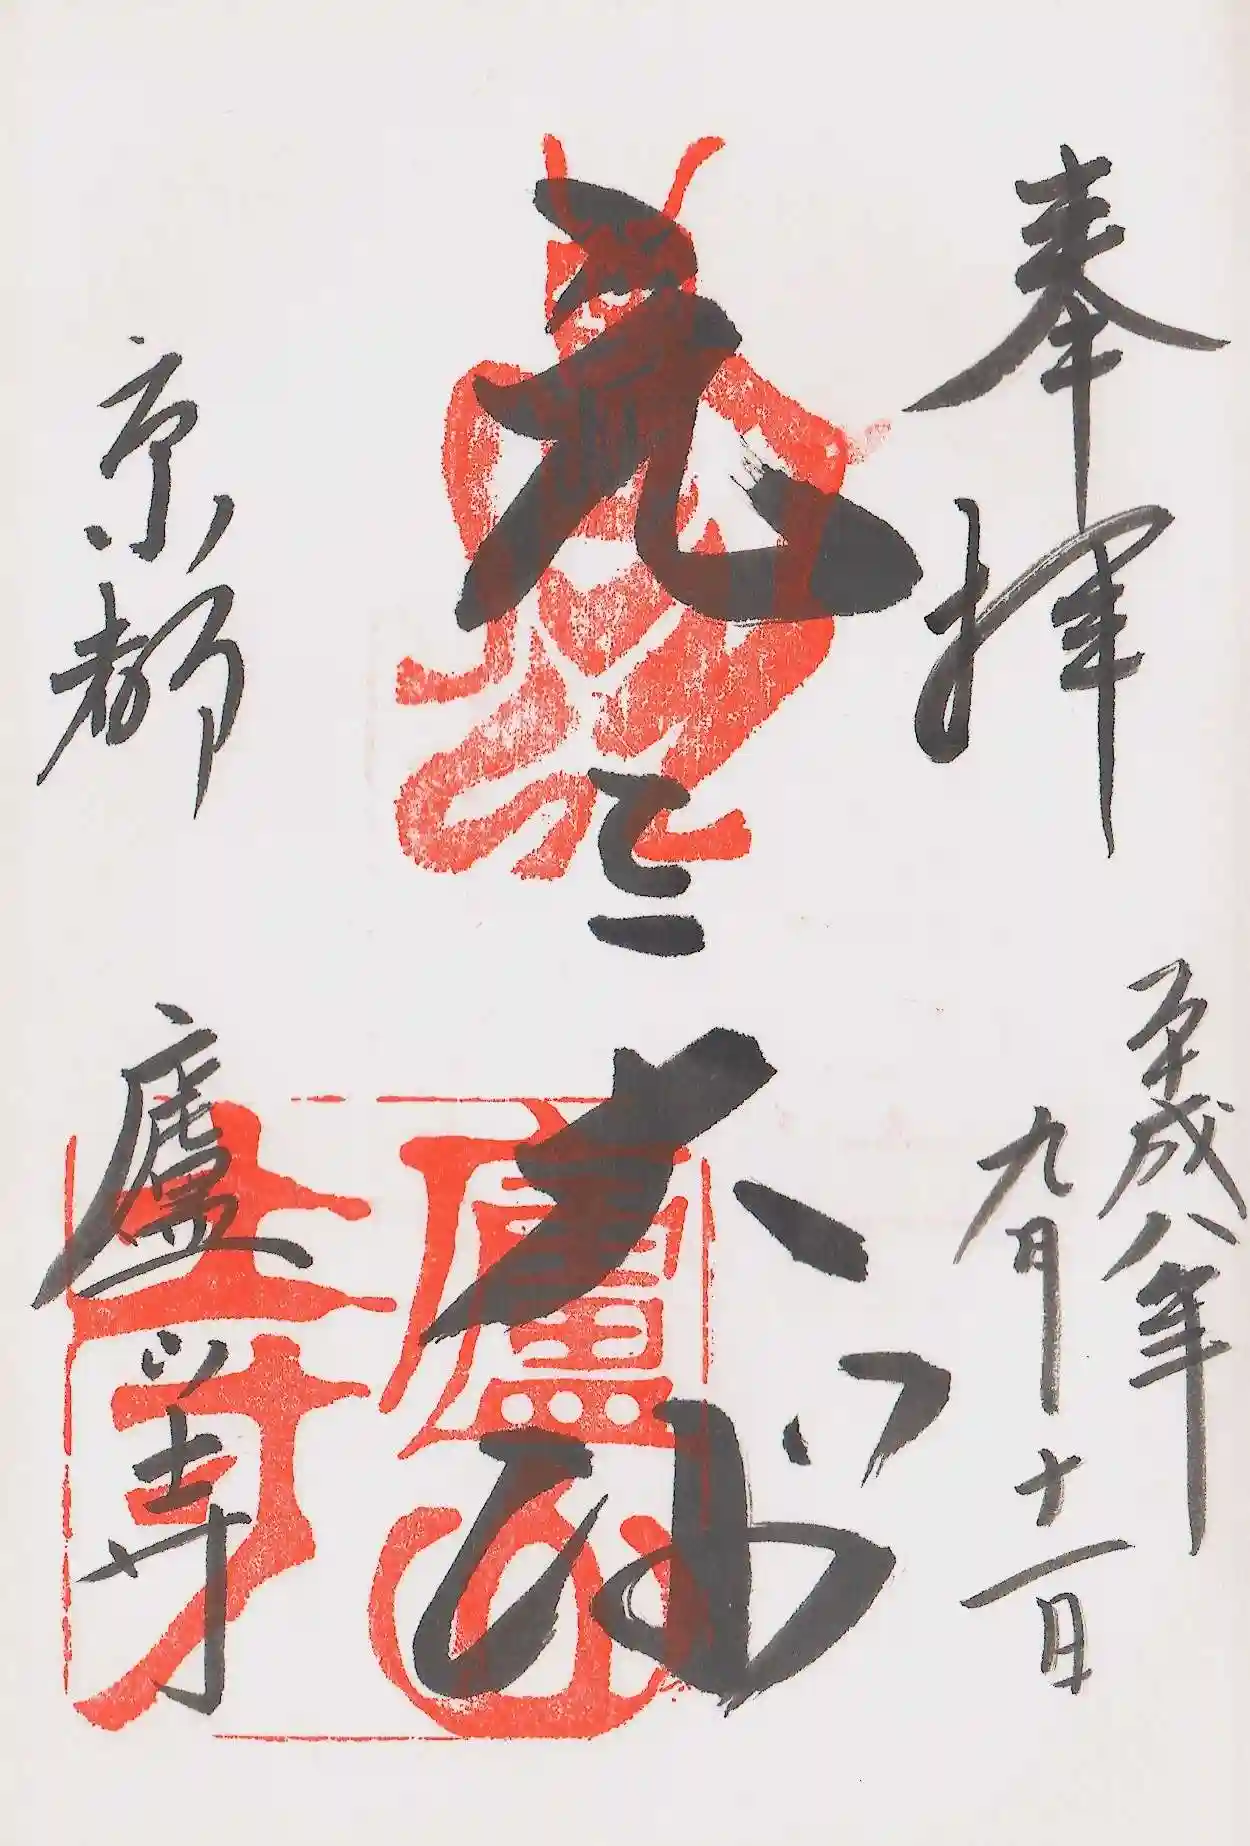 奉拝
平成八年
九月十一日
元三大師
京都
廬山寺
廬山
寺